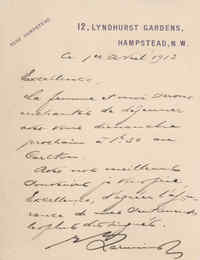 5092 HAMPSTEAD
12, LYNDHURST GARDENS,
HAMPSTEAD, N.W.
Ce 1er Avril 1912
Excellence.
La femme et moi serons
enchantés de déjeuner
avec vous dimanche
prochain à 1.30 au
Carlton.
Avec nos meilleurs
Excellence, d'agréer l'assu-
rance de mes sentiments
les plus distingués.